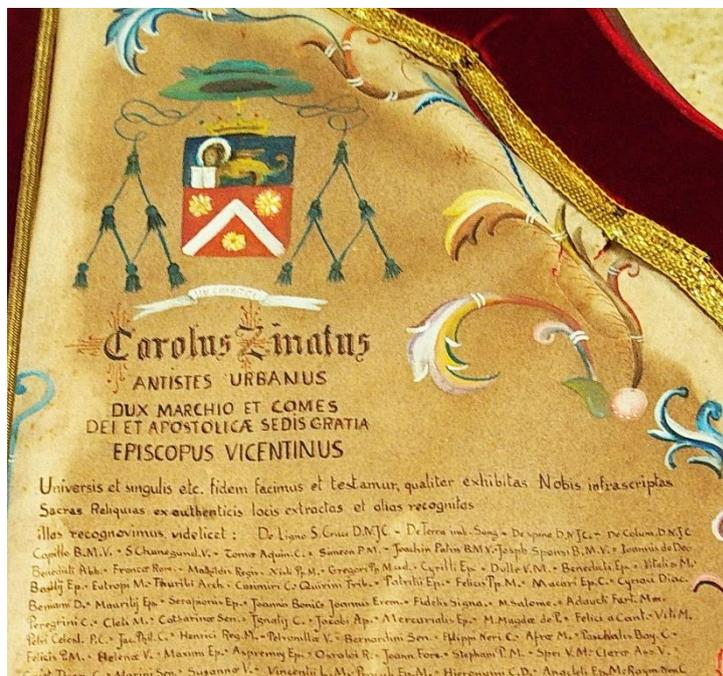 IN CHARITATE
Carolus Zinatus
ANTISTES URBANUS
DUX MARCHIO ET COMES
DEI ET APOSTOLICÆ SEDIS GRATIA
EPISCOPUS VICENTINUS
Universis et singulis etc. fidem facimus et testamur, qualiter exhibitas Nobis infrascriptas
Sacras Reliquias ex authenticis locis extractas et alias recognitas
illas recognovimus, videlicet : De Ligno S. Crucis D.N.J.C - De Terra imb. Sang - De spina D.N.J.C. - De Colum. D.N.J.C
Capillo B.M.V. - S. Chunegund. V. - Tomæ Aquin. C. - Simeon P.M. - Joachin Patris B.M.V. - Joseph Sponsi B.M.V. - Joannis de Deo
Benedicti Abb. - Franceæ Rom. - Matildis Regin - Xisti Pp. M. - Gregori Pp. M. - Cyrilli Ep - Dulle V. M. - Benedicti Ep. - Vitalis M.
Basilij Ep. - Eutropi M. - Thuribi Arch - Casimiri C. - Quirini Trib. - Patritii Ep. - Felicis Pp. M. - Macari Ep. C. - Cyriaci Diac.
Bernani D. - Maurilij Ep. - Serapionis Ep. - Joannis Bonice Joannis Erem. - Fidelis Signa. - M. Salome. - Adaucti Fart. Mar.
Peregrini C. - Cleti M. - Catharinæ Sen. - Ignatij C. - Jacobi Ap. - Mercurialis Ep. - M. Magdæ de P. - Felici a Cant. - Viti M.
Petri Celest. P.C. - Jac. Phil. C. - Henrici Reg. M. - Petronillæ V. - Bernardini Sen. - Filippi Neri C. - Afræ M. - Paschalis Bay. C. -
Felicis P.M. - Helenæ V. - Maximi Ep. - Aspremij Ep. - Oswaldi R. - Joann. Fors. - Stephani P. M. - Spei V. M. - Claræ Ass. V. -
C. - Marini Sen. - Susannæ V. - Vincentii L. M. - Proculi Ep. M. - Hieronym C. D. - Anacleti Ep. M.